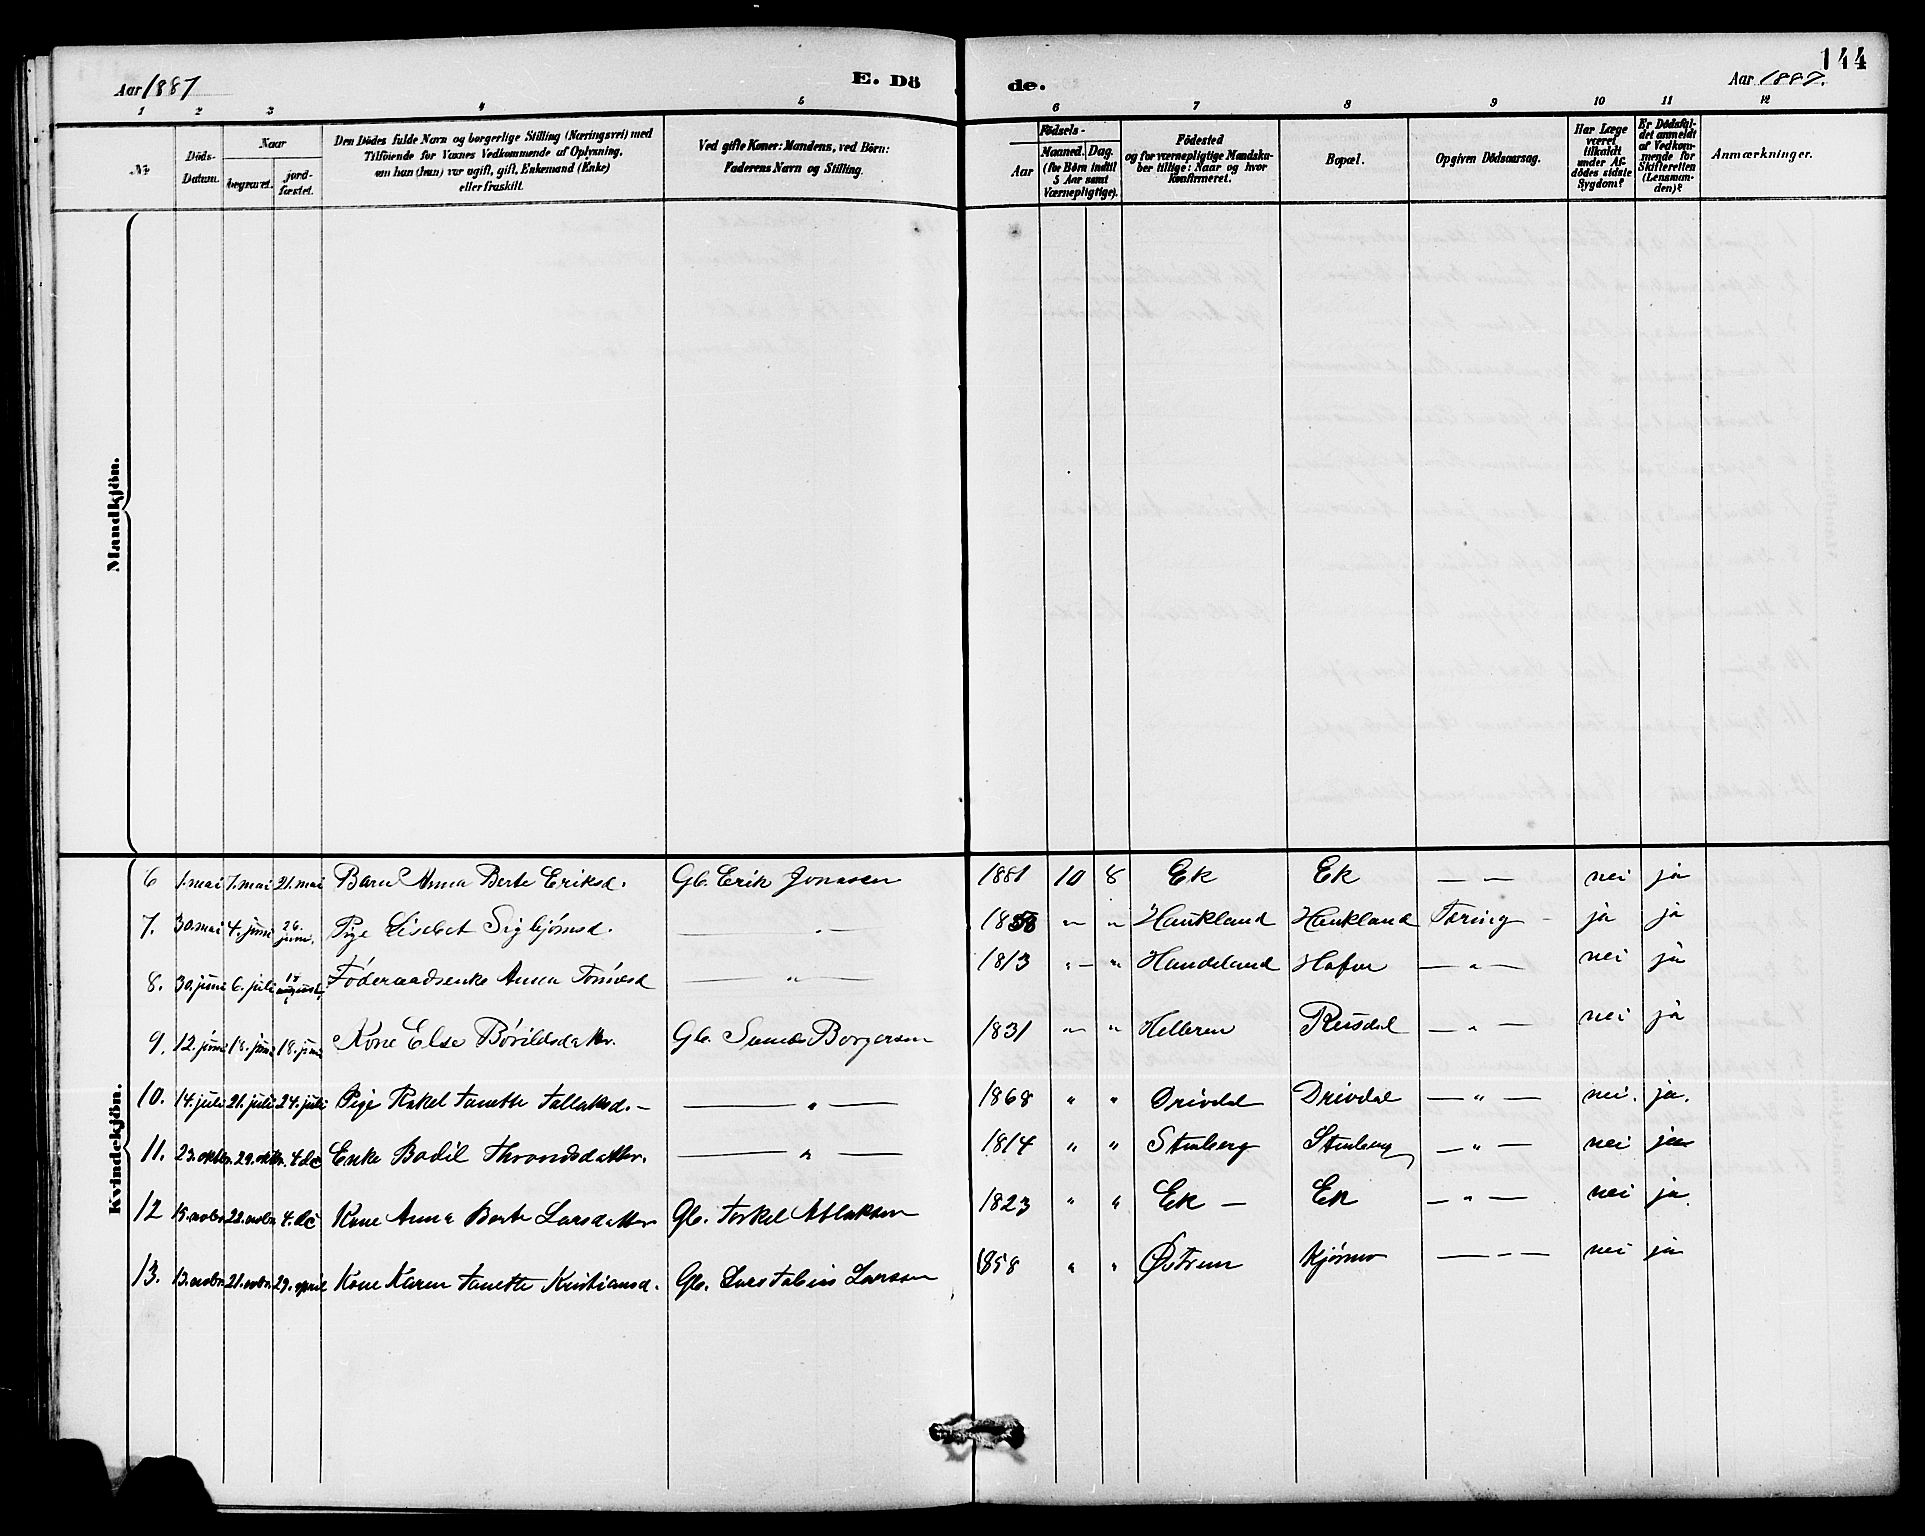 144
Aar 1887
E. Dö
de.
Aar 1887.
1 2 3 4 5 6 7 8 9 10 11 12
№
Döds-Datum.
Naar
begravet.
jord-fæstet.
Den Dödes fulde Navn og borgerlige Stilling (Næringsvei) med
Tilföiende for Voxnes Vedkommende af Oplysning,
om han (hun) var ugift, gift, Enkemand (Enke)
eller fraskilt.
Ved gifte Koner: Mandens, ved Börn:
Faderens Navn og Stilling.
Födsels-
Aar
Maaned. Dag.
(for Börn indtil
5 Aar samt
Værnepligtige).
Födested
og for værnepligtige Mandska-
ber tillige: Naar og hvor
konfirmeret.
Bopæl.
Opgiven Dödsaarsag.
Har Læge
været
tilkaldt
under Af-
dödes sidste
Sygdom?
Er Dödsfal-
det anmeldt
af Vedkom-
mende for
Skifteretten
(Lensman-
den)?
Anmærkninger.
Mandkjön.
Kvindekjön.
6 1. mai 7. mai 21. mai Barn Anna Berte Eriksd. Gb. Erik Jonassen 1881 10 8 Ek Ek — — nei ja
7. 30. mai 4. juni 26. juni. Pige Lisabet Sigbjörnsd. — " — 18 " " Haukland Haukland Tæring - ja ja
8. 30. juni 6. juli august Föderaadsenke Anna — " — 1813 " " Handeland — " — nei ja
9. 12. juni 18. juni 18. juni Kone Else Gb. 1831 " " Helleren Reusdal — " — nei ja
10. 14. juli 21. juli 24. juli Pige Rakel Tanette Tallaksd. — — " — 1868 " " Drivdal Drivdal — " — nei. ja.
11. 23. oktbr. 29. oktbr. 4. dec Enke Bodil Throndsdatter. — " — 1814 " " Stenberg Stenberg — " — nei ja
12 15. novbr 22. novbr 4. dec Kone Anna Berte Larsdatter Gb. Torkel 1823 " " Ek — Ek — " — nei ja.
13. 13. novbr. 21. novbr. 29. april Kone Karen Tanette Kristiansd. Gb. Lars Tobias Larsen 1858 " " — " — nei ja